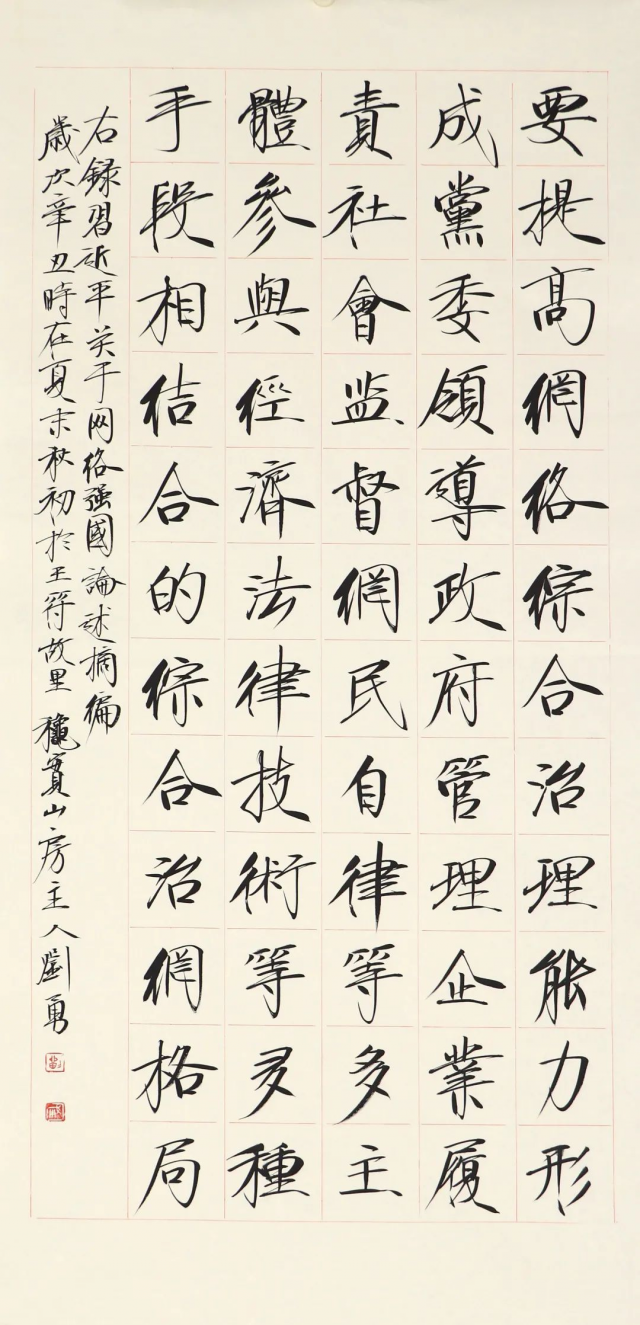 要提高網絡綜合治理能力形
成黨委領導政府管理企業履
責社會监督網民自律等多主
體參與經濟法律技術等多種
手段相結合的綜合治網格局
右録習近平关于网络强國論述摘编
歲次辛丑時在夏末秋初於王符故里 龝實山房主人劉勇